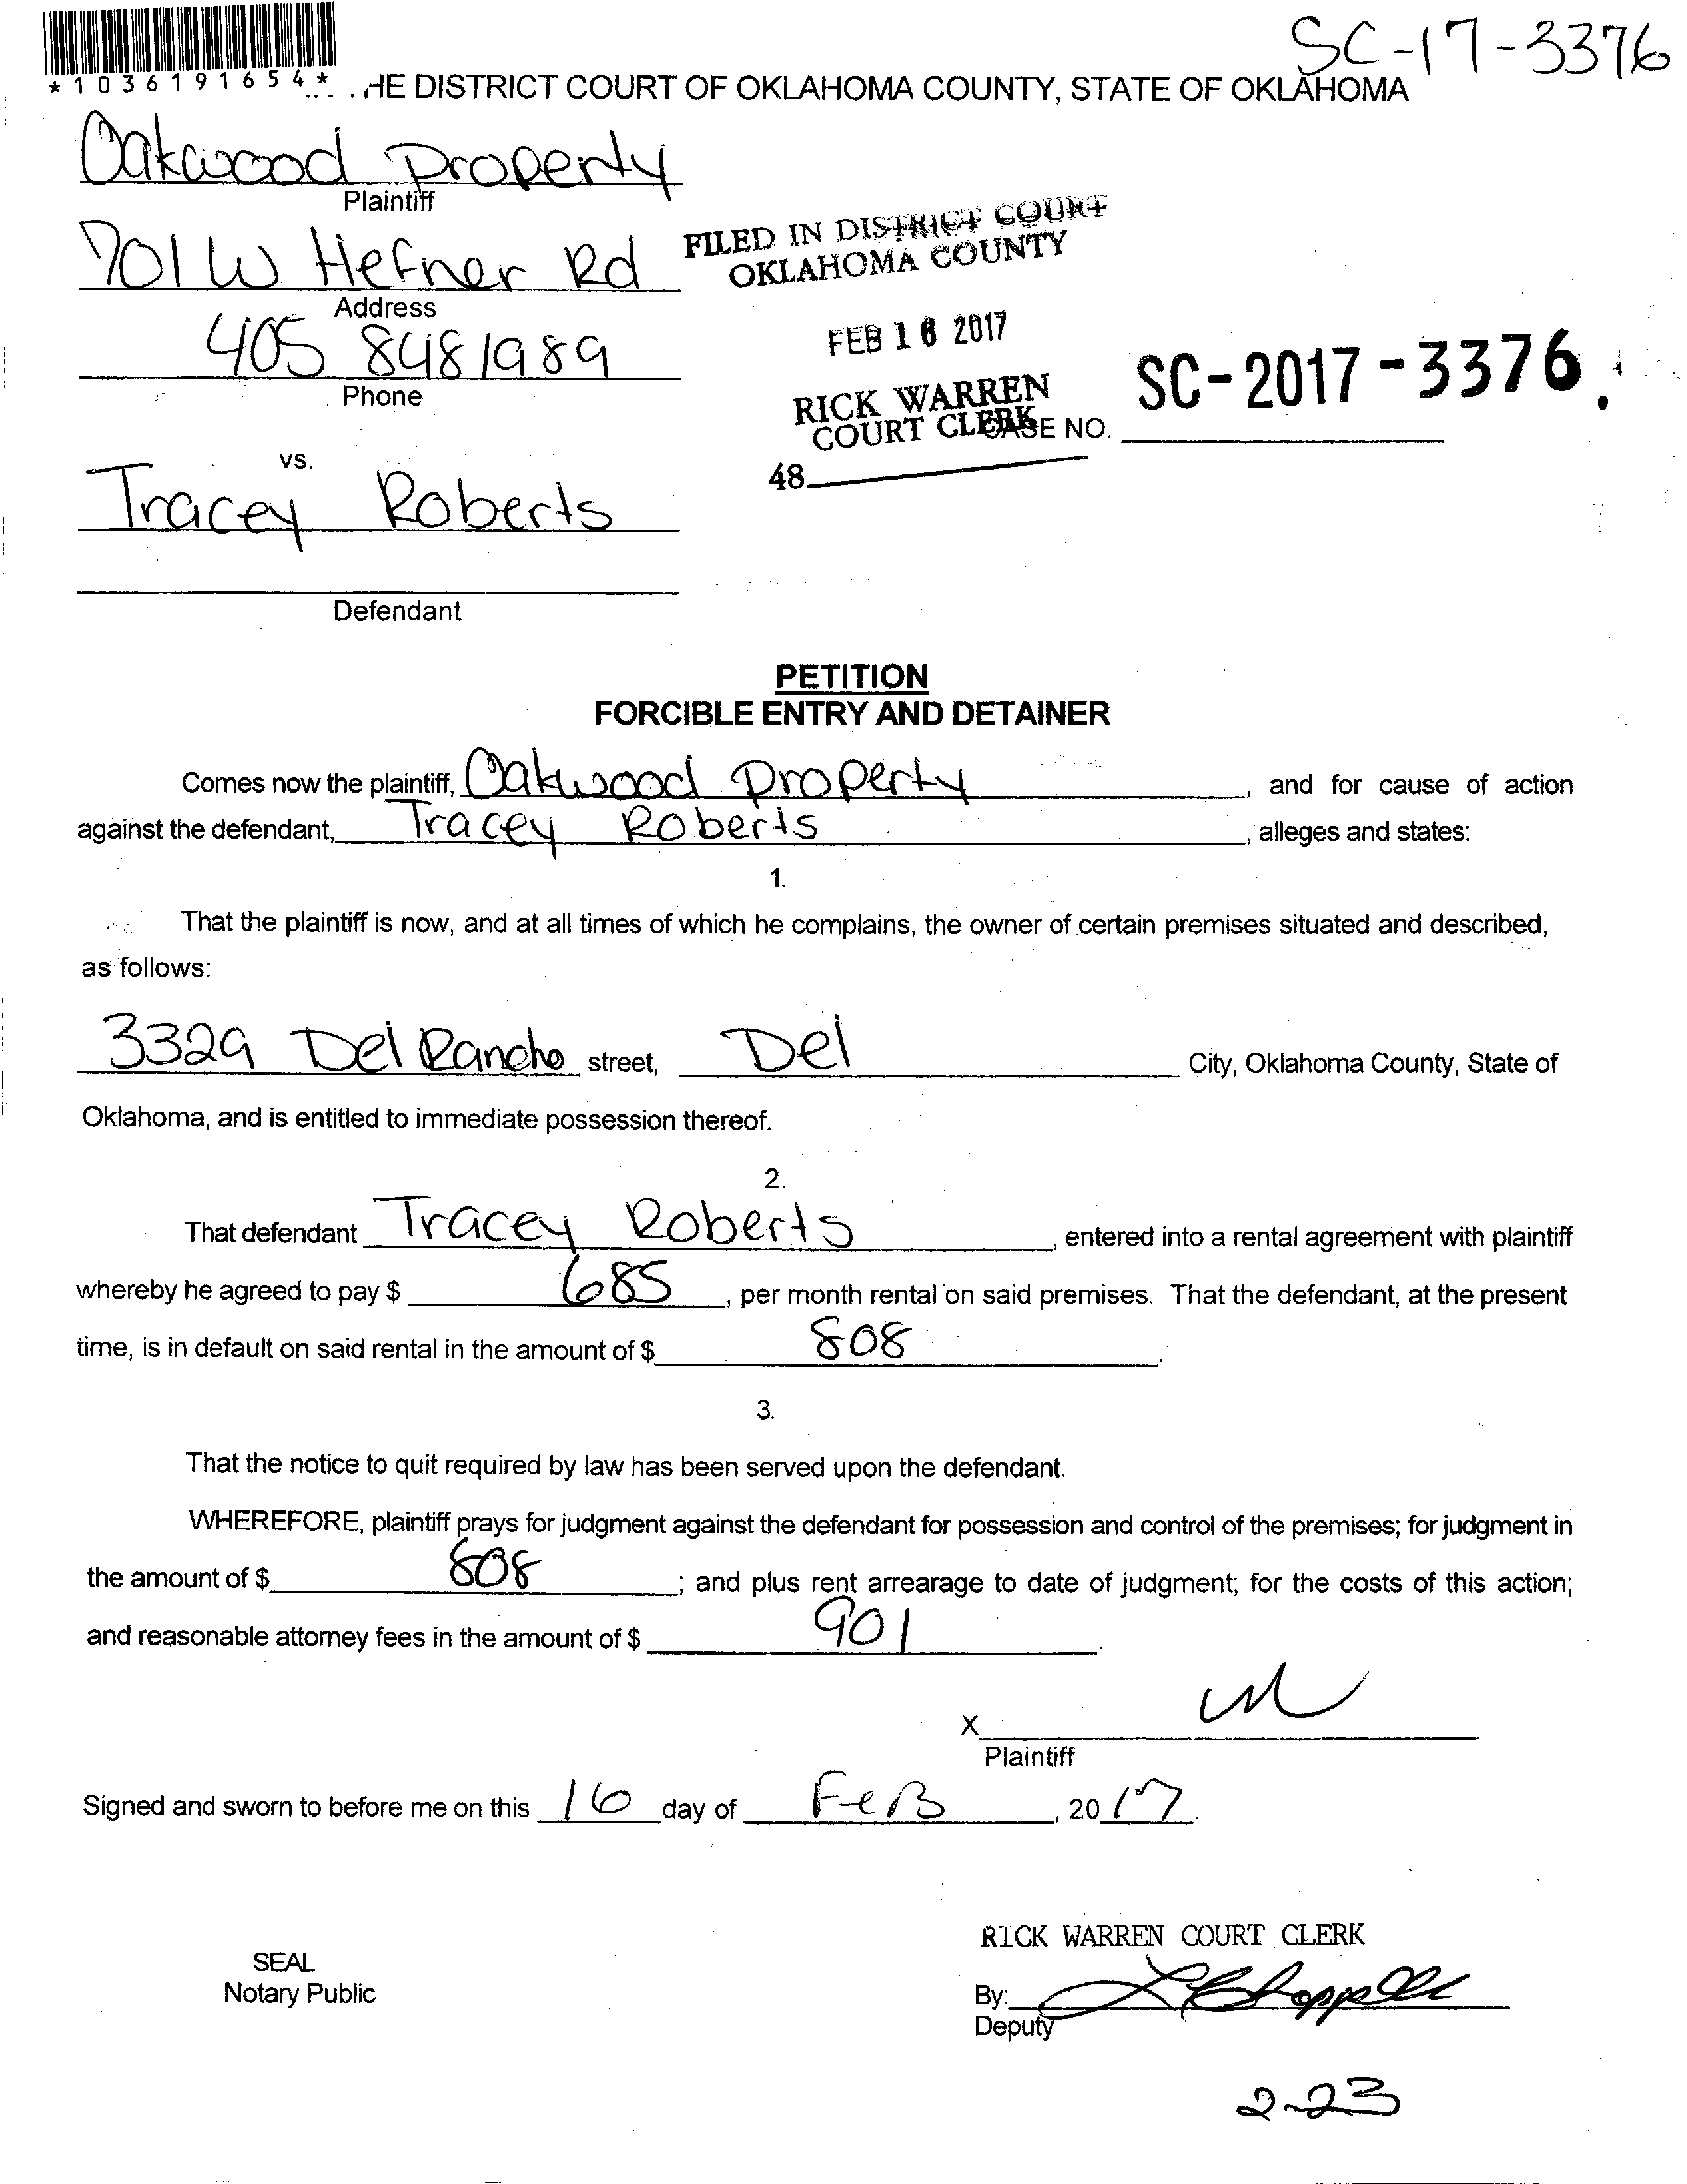 SC-17-3376
*1036191654* HE DISTRICT COURT OF OKLAHOMA COUNTY, STATE OF OKLAHOMA
Oakwood Property
Plaintiff
701 W Hefner Rd
Address
405 848 1989
Phone
FILED IN DISTRICT COURT
OKLAHOMA COUNTY
FEB 16 2017
RICK WARREN
COURT CLERK
48
CASE NO. SC-2017-3376.
vs.
Tracey Roberts
Defendant
PETITION
FORCIBLE ENTRY AND DETAINER
Comes now the plaintiff, Oakwood Property, and for cause of action
against the defendant, Tracey Roberts, alleges and states:
1.
That the plaintiff is now, and at all times of which he complains, the owner of certain premises situated and described,
as follows:
3329 Del Rancho street, Del City, Oklahoma County, State of
Oklahoma, and is entitled to immediate possession thereof.
2.
That defendant Tracey Roberts, entered into a rental agreement with plaintiff
whereby he agreed to pay $ 685, per month rental on said premises. That the defendant, at the present
time, is in default on said rental in the amount of $ 808.
3.
That the notice to quit required by law has been served upon the defendant.
WHEREFORE, plaintiff prays for judgment against the defendant for possession and control of the premises; for judgment in
the amount of $ 808; and plus rent arrearage to date of judgment; for the costs of this action;
and reasonable attorney fees in the amount of $ 901.
X
Plaintiff
Signed and sworn to before me on this 16 day of FeB, 2017.
RICK WARREN COURT CLERK
SEAL
Notary Public
By:
Deputy
2-23